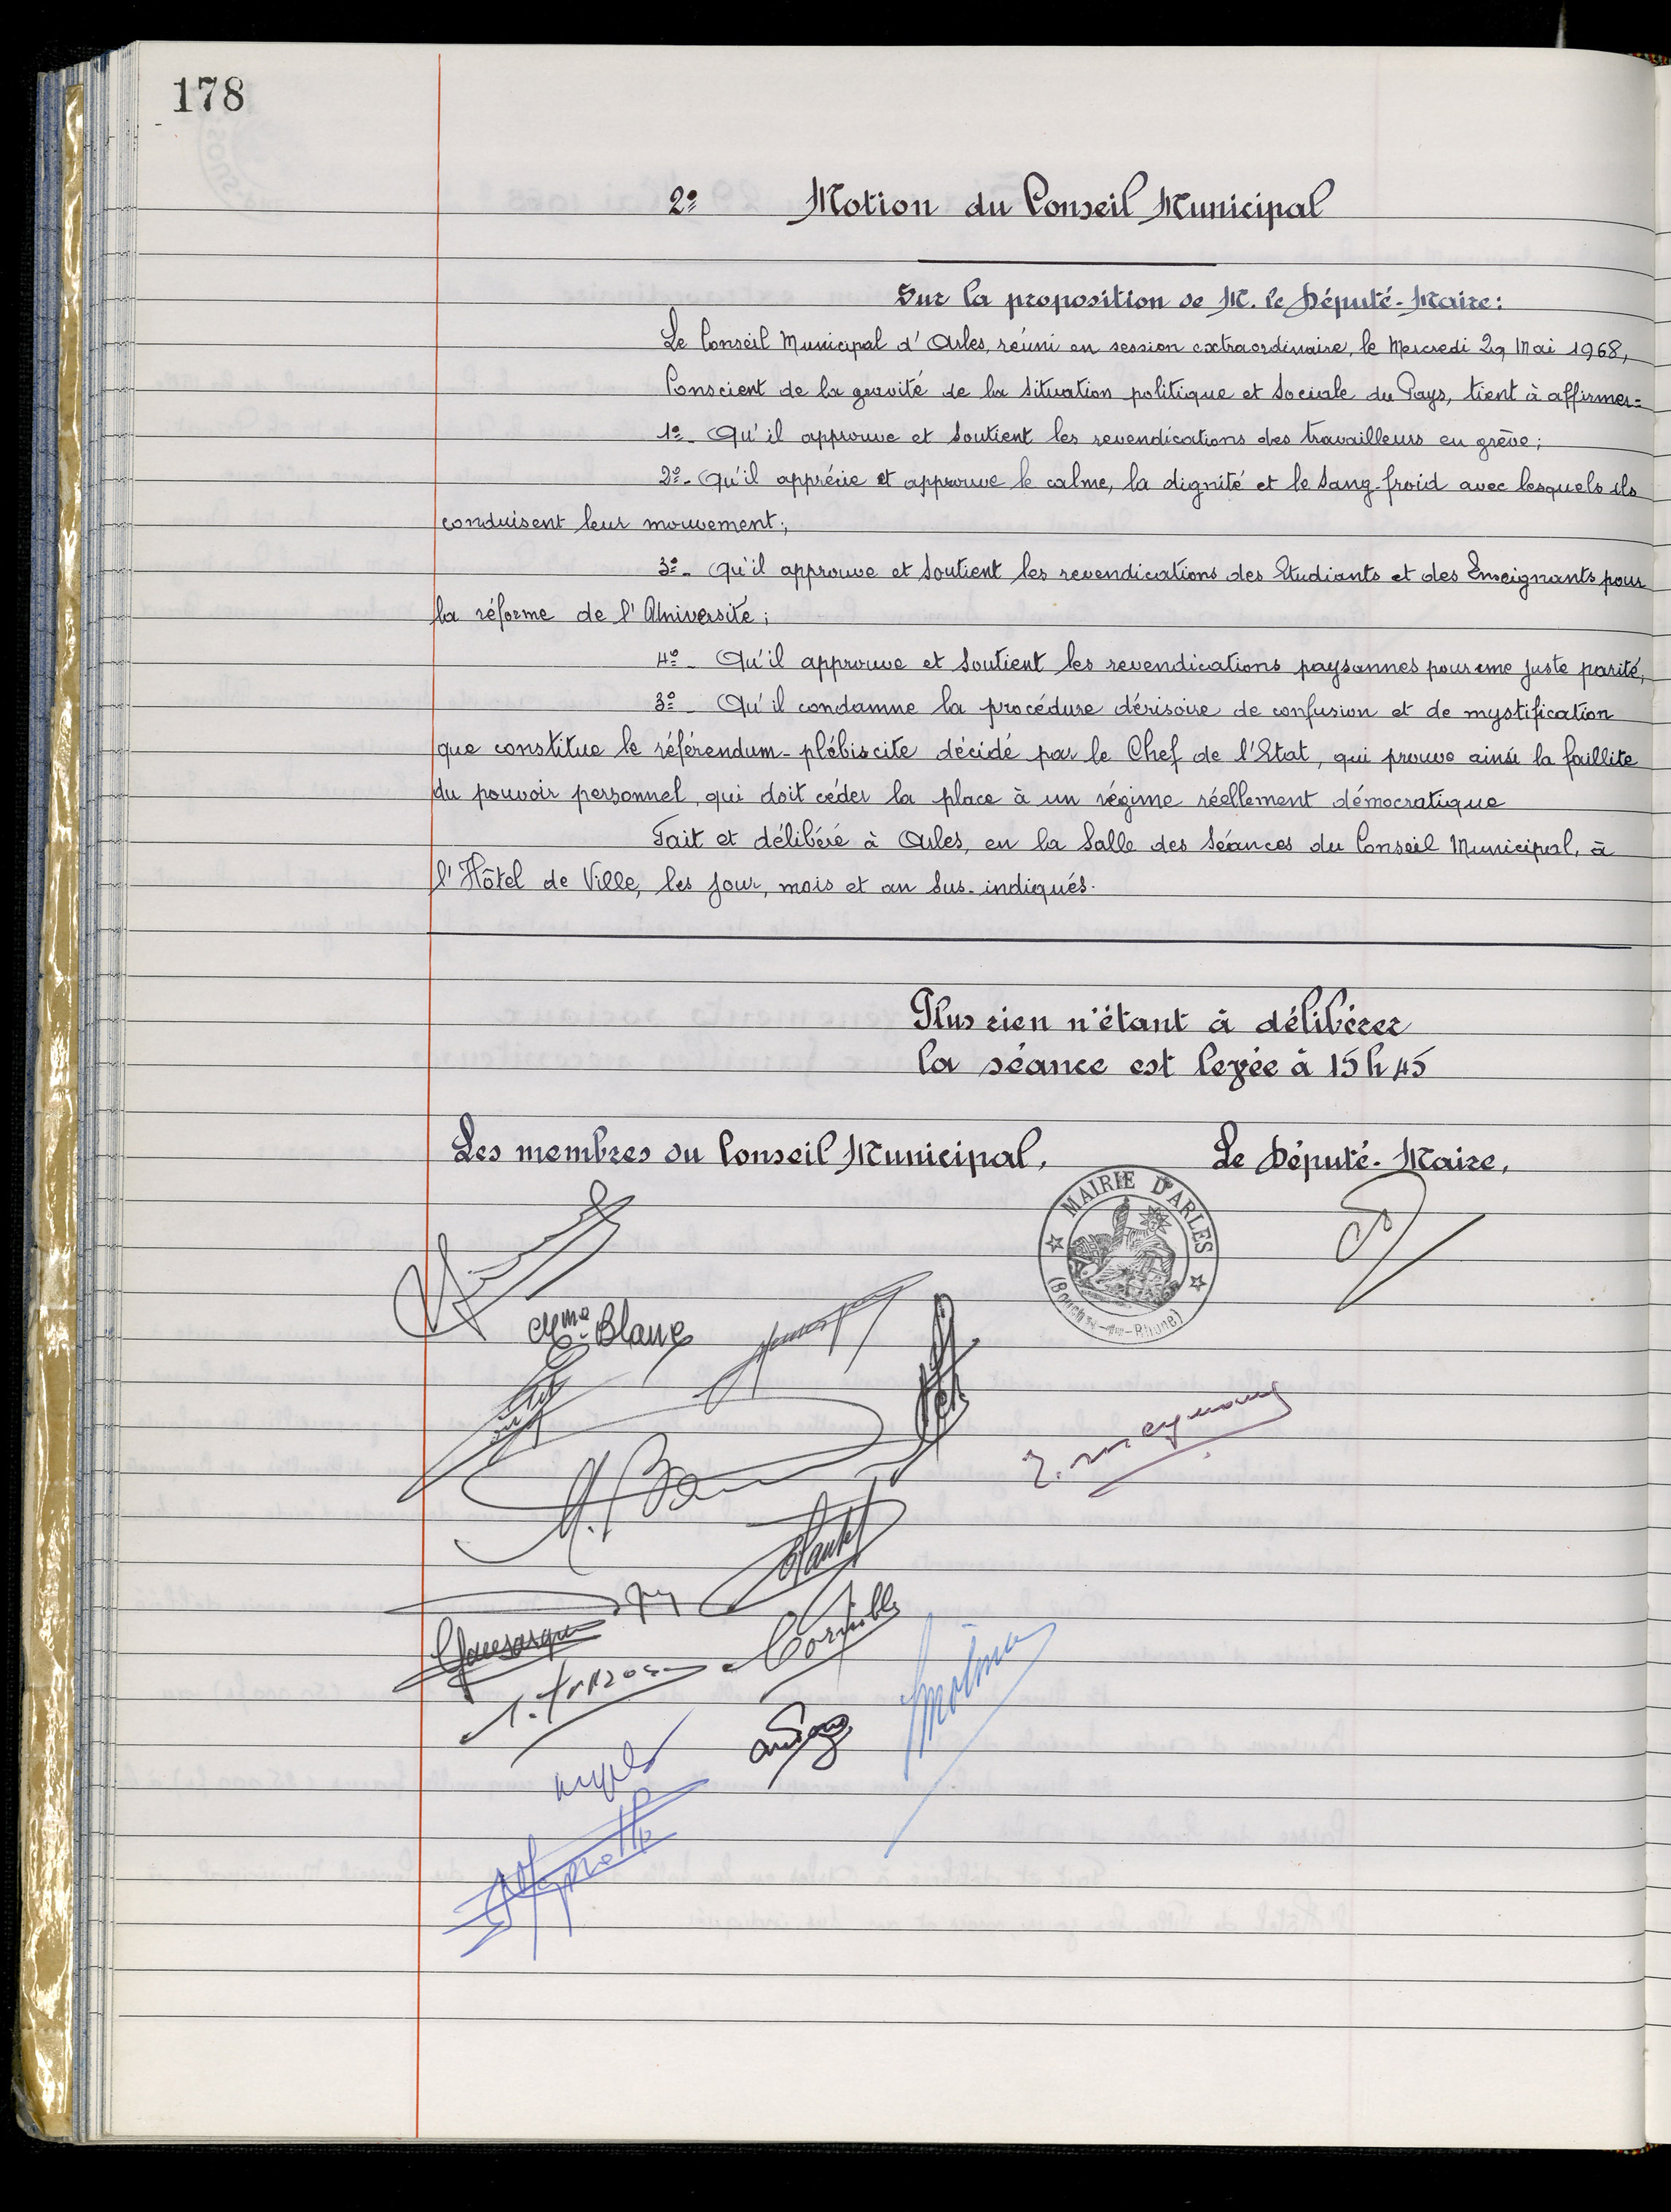 178
2º Motion du Conseil Municipal
Sur la proposition de M. le Député-Maire:
Le Conseil Municipal d'Arles, réuni en session extraordinaire, le Mercredi 29 Mai 1968,
Conscient de la gravité de la situation politique et Sociale du Pays, tient à affirmer:
1º- Qu'il approuve et soutient les revendications des travailleurs en grève;
2º- Qu'il apprécie et approuve le calme, la dignité et le sang-froid avec lesquels ils
conduisent leur mouvement;
3º- Qu'il approuve et soutient les revendications des Etudiants et des Enseignants pour
la réforme de l'Université;
4º- Qu'il approuve et soutient les revendications paysannes pour une juste parité;
3º- Qu'il condamne la procédure dérisoire de confusion et de mystification
que constitue le référendum-plébiscite décidé par le Chef de l'Etat, qui prouve ainsi la faillite
du pouvoir personnel, qui doit céder la place à un régime réellement démocratique
Fait et délibéré à Arles, en la Salle des Séances du Conseil Municipal, à
l'Hôtel de Ville, les jour, mois et an sus-indiqués.
Plus rien n'étant à délibérer
la séance est levée à 15 h 45
Les membres du Conseil Municipal, Le Député-Maire,
MAIRIE D'ARLES
(Bouches-du-Rhône)
Blanc
Molina